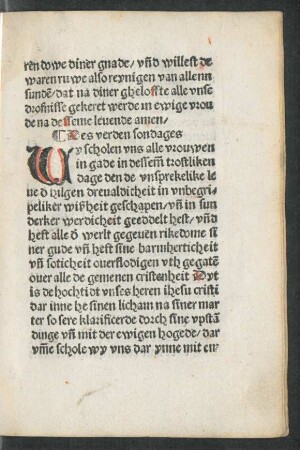 ren dowe diner gnade/ vn̄d willest de
waren ruwe also reynigen van allenn
sundē/ dat na diner ghelofste alle vnse
drofnisse gekeret werde in ewige vrou
de na desseme leuende amen/
¶ Des verden sondages
Wy scholen vns alle vrouwen
in gade in dessem̄ trostliken
dage den de vnsprekelike le
ue d̄ hilgen dreualdicheit in vnbegri
peliker wißheit geschapen/ vn̄ in sun
derker werdicheit geeddelt hest/ vn̄d
heft alle d̄ werlt gegeuen rikedome si
ner gude vn̄ heft sine barmherticheit
vn̄ soticheit ouerflodigen vth gegatē
ouer alle de gemenen cristenheit Dyt
is de hochtidt vnses heren ihesu cristi
dar inne he sinen licham na siner mar
ter so sere klarificerde dorch sine vpstā
dinge vn̄ mit der ewigen hogede/ dar
vm̄e schole wy vns dar ynne mit en⸗